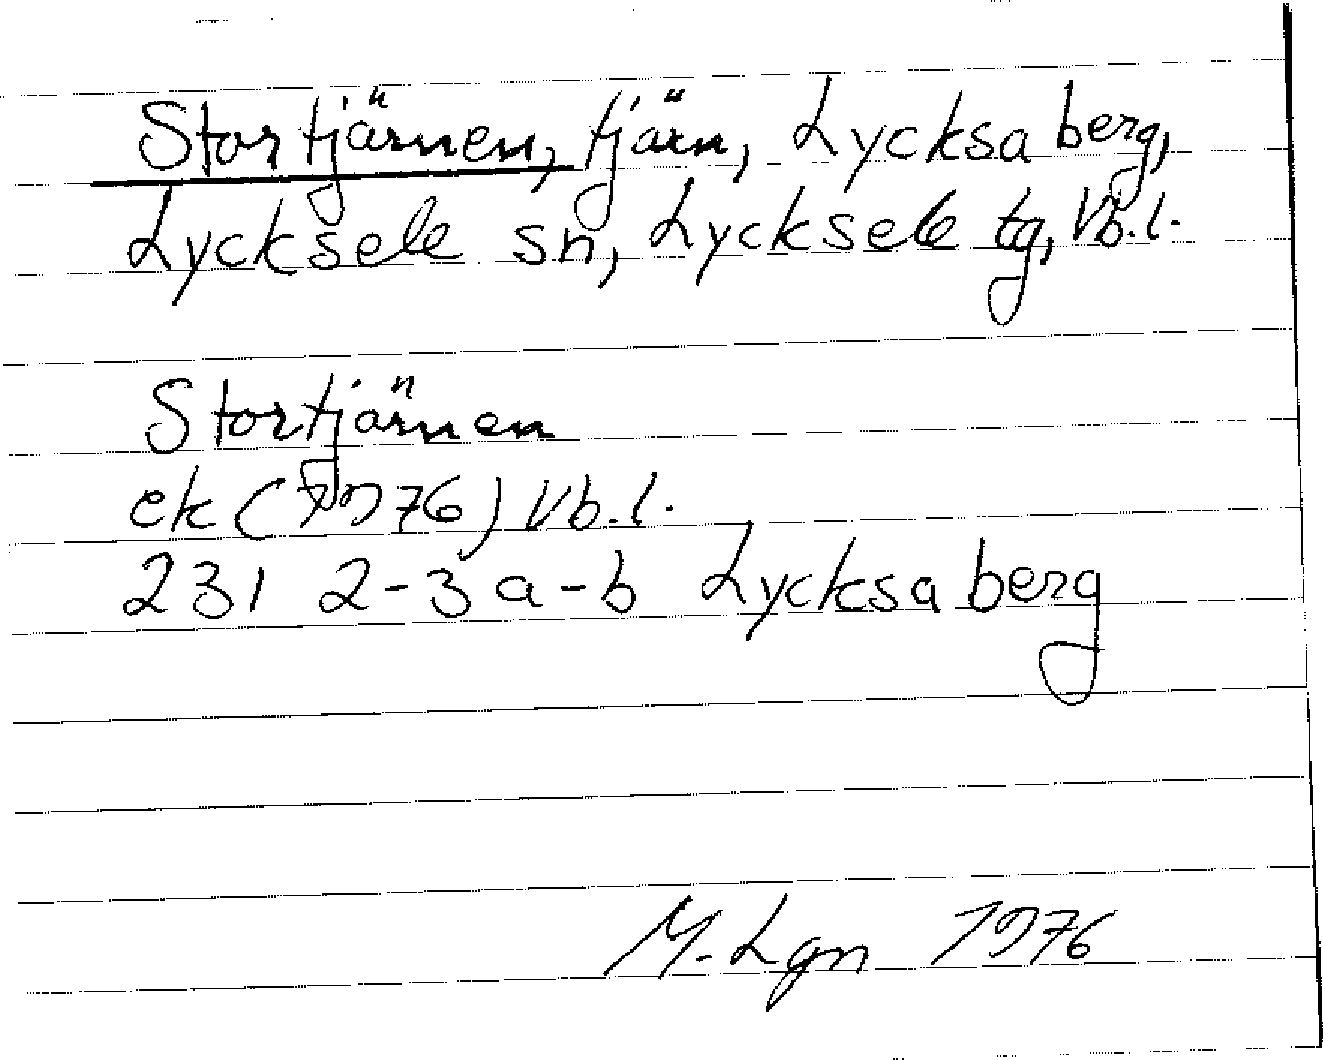 Stortjärnen, tjärn, Lycksaberg,
Lycksele sn, Lycksele tg, Vb.l.
Stortjärnen
ek (1976) Vb.l.
231 2-3 a-b Lycksaberg
M. Lgn 1976